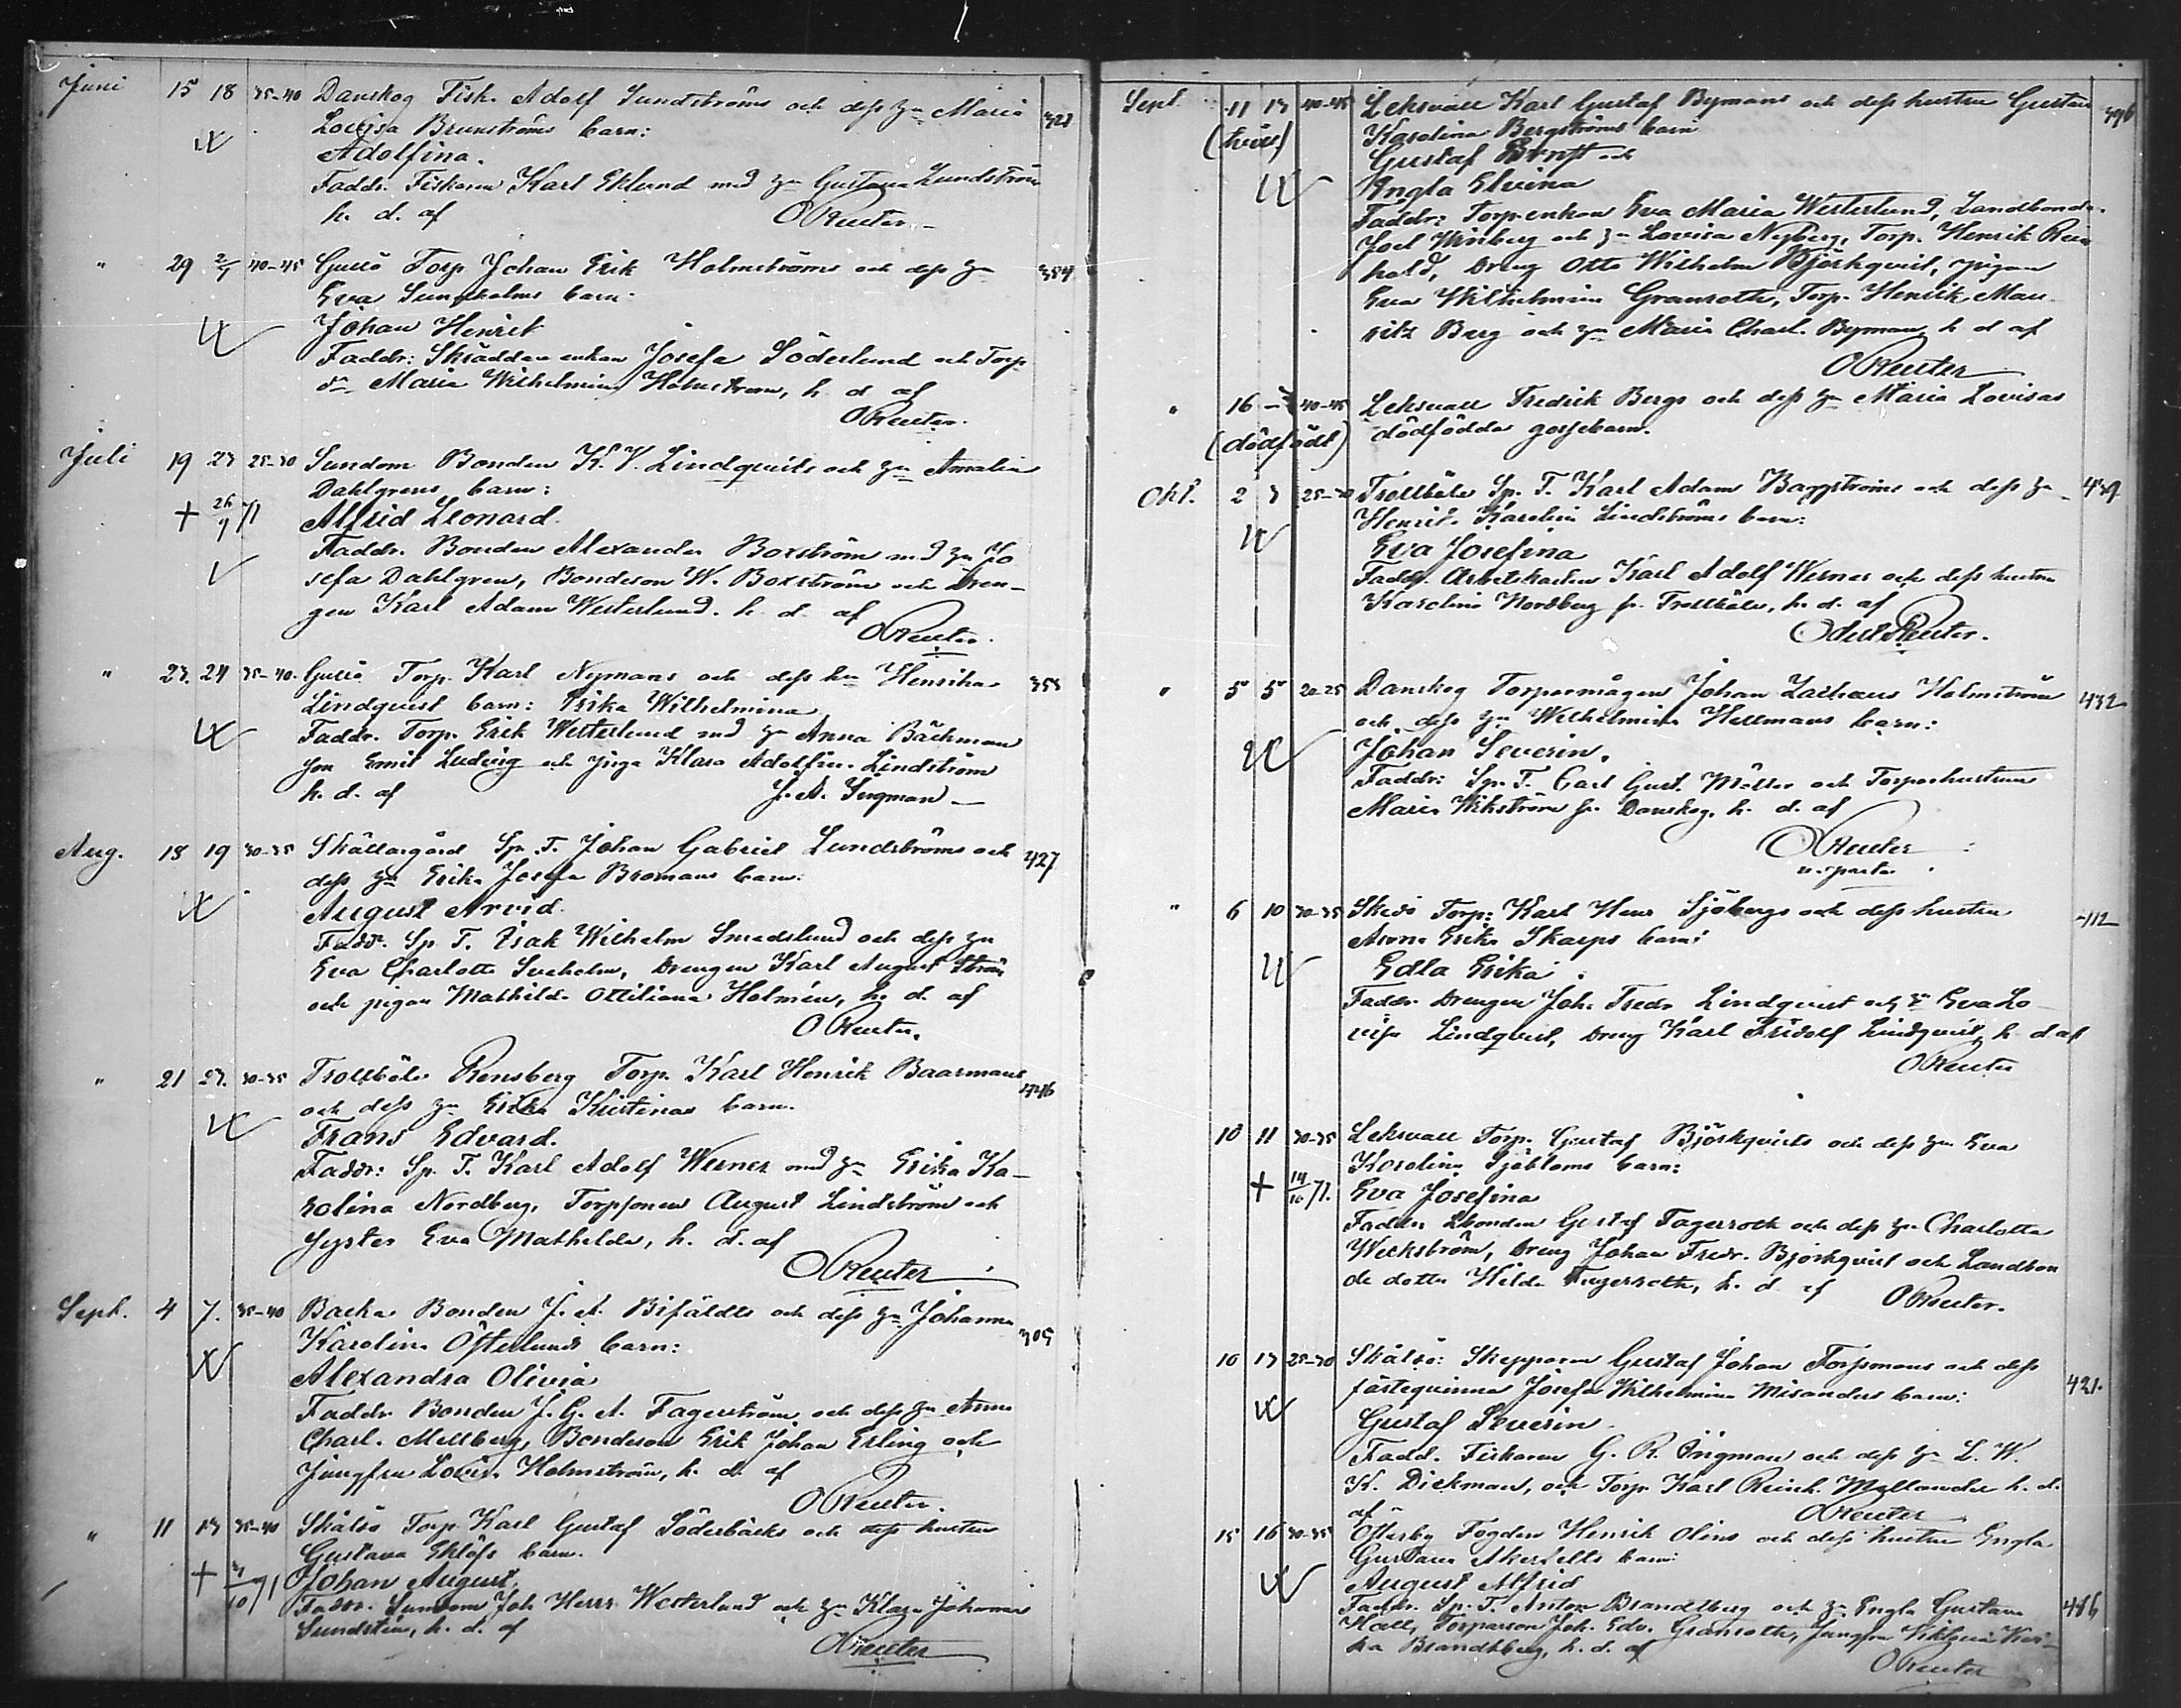 Juni 15 18 35-40 Danskog Fisk. Adolf Sundströms och dess hu Maria 321
Lovisa Brunströms barn:
Adolfina.
Faddr. Fiskaren Karl Eklund med hu Gustava Lundström
h. d. af OReuter.
" 29 2/7 40-45 Gullö Torp Johan Erik Holmströms och dess hu 354
Eva barn.
Johan Henrik
Faddr: Skräddare enkan Josefa Söderlund och Torp.
dr Maria Wilhelmina Holmström, h. d. af
OReuter.
Juli 19 23 25-30 Sundom Bonden K. V. Lindqvists och hu Amalia
Dahlgrens barn:
+ 26/9 71 Alfrid Leonard.
Faddr. Bonden Alexander Boxström med hu Jo
sefa Dahlgren, Bondeson W. Boxström och Dren-
gen Karl Adam Westerlund. h. d. af
OReuter.
" 23. 24 35-40. Gullö Torp. Karl Nymans och dess hu Henrika 355
Lindqvist barn: Erika Wilhelmina
Faddr. Torp. Erik Westerlund med hu Anna Bäckman
son Emil Ludvig och piga Klara Adolfin. Lindström
h. d. af J. A. Lugman
Aug. 18 19 30-35 Skällargård Sp. T. Johan Gabriel Lundströms och 427
dess hu Erika Josefa Bromans barn.
August Arvid.
Faddr. Sp T. Isak Wilhelm Smedslund och dess hu
Eva Charlotta Sveholm, Drengen Karl August
och pigan Mathilda Ottiliana Holmén, h. d. af
OReuter.
" 21 27. 30-35 Trollböle Rensberg Torp. Karl Henrik Baarmans
och dess hu Erika Kristinas barn.
Frans Edvard.
Faddr: Sp. T. Karl Adolf Werner med hu Erika Ka-
rolina Nordberg, Torpsonen August Lindström och
syster Eva Mathilda, h. d. af
OReuter
Sept. 4 7. 35-40 Backa Bonden J. A. Bifäldts och dess hu Johanna 305
Karolina Österlunds barn:
Alexandra Olivia
Faddr. Bonden J. G. A. Fagerström och dess hu Anna
Charl. Mellberg, Bondeson Erik Johan Erling och
Jungfru Lovisa Holmström, h. d. af
OReuter.
" 11 13 35-40 Skälsö Torp. Karl Gustaf Söderbäcks och dess hustru
Gustava Eklöfs barn.
+ /10 71 Johan August.
Faddr. Sundom Joh Henr. Westerlund och hu Klara Johanna
Sundström, h. d. af
OReuter
Sept. 11 13 40-45 Leksvall Karl Gustaf Bymans och dess hustru Gustava 396
Karolina Bergströms barn
Gustaf Ernst och
Angla Elvina
Faddr: Torp.enkan Eva Maria Westerlund, Landbonde
Joel Winberg och hu Lovisa Nyberg, Torp. Henrik Rein
hold, Dreng Otto Wilhelm Björkqvist, pigan
Eva Wilhelmina Granroth, Torp. Henrik Mau
ritz Berg och hu Maria Charl. Byman h. d. af
OReuter
" 16 - 40-45 Leksvall Fredrik Bergs och dess hu Maria Lovisas
(dödfödt) dödfödda gossebarn.
Okt. 2 3 25-30 Trollböle Sp. T. Karl Adam Baggströms och dess hu 439
Henrik. Karolina Lindströms barn:
Eva Josefina
Faddr. Arbetskarlen Karl Adolf Werner och dess hustru
Karolina Nordberg fr. Trollböle, h. d. af
OReuter.
" 5 5 20-25 Danskog Torparmågen Johan Zachæus Holmström 432
och dess hu Wilhelmina Hellmans barn:
Johan Severin.
Faddr: Sp. T. Carl Gust. Möller och Torparehustrun
Maria Wikström fr. Danskog. h. d. af
OReuter
" 6 10 30-35 Skedö Torp: Karl Henr Sjöbergs och dess hustru 412
Anna Erika Skarps barn:
Edla Erika.
Faddr. Drengen Joh. Fredr Lindqvist och hu Eva Lo-
visa Lindqvist, Dreng Karl Fridolf Lindqvist, h. d. af
OReuter
10 11 30-35 Leksvall Torp. Gustaf Björkqvists och dess hu Eva
Karolina Sjöbloms barn:
+ 14/10 71. Eva Josefina
Faddr. Lbonden Gustaf Fagerroth och dess hu Charlotta
Weckström, Dreng Johan Fredr. Björkqvist och Landbon
de dotter Hilda Fagerroth, h. d. af OReuter.
10 13 25-30 Skälsö: Skepparen Gustaf Johan Forsmans och dess 421.
fästeqvinna Josefa Wilhelmina Misanders barn:
Gustaf Severin.
Fadd. Fiskaren G. R. Öngman och dess hu L. W.
K. Dickman, och Torp Karl Reinh. Mellander h. d.
af OReuter
15 16 30-35 Österby Fogden Henrik Olins och dess hustru Engla
Gustava Åkerfelts barn:
August Alfrid
Faddr. Sp. T. Anton Brandtberg och hu Engla Gustava 486
Hall, Torparson Joh. Edv. Granroth, Jungfru Viktoria
Brandtberg, h. d. af
OReuter